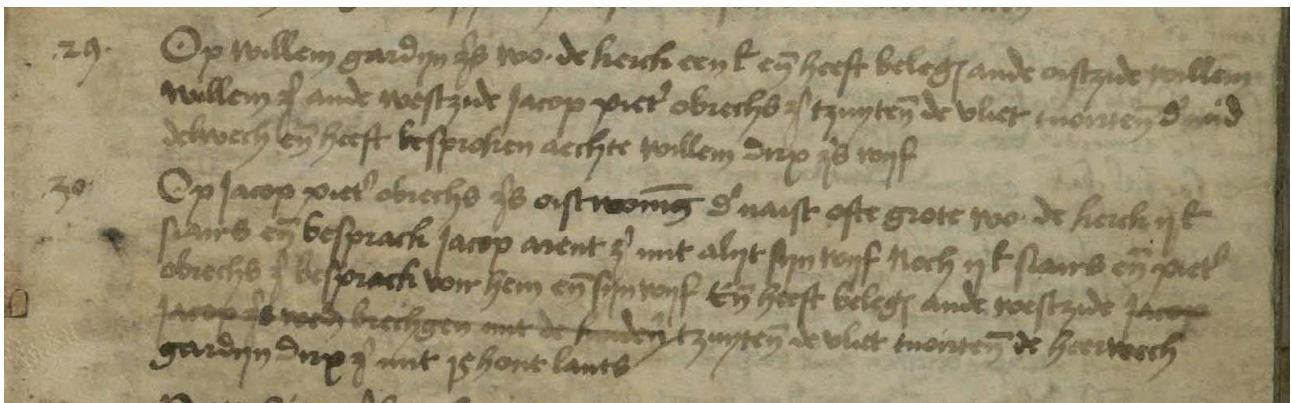 .29. Op willem gardijn zs wo. de kerck een k en heeft beleg ande oistzide willem
willem z ande westzide Jacop piet obrechs z tzuyten de vliet tnorten d mid
delwech en heeft besproken aechte willem dirx zs wijf
30 Op Jacop piet obrechs zs oist woning d naist ofte grote wo. de kerck ij k
siairs en besprack Jacop arent z mit alijt sijn wijf Noch ij k siairs en piet
obrechs z besprack voir hem en sijn wijf En heeft beleg ande westzide Jacop
Jacop zs wed brechgen mit de kinden tzuyten de vliet tnorten de heerwech
gardijn dirx z mit hont lants